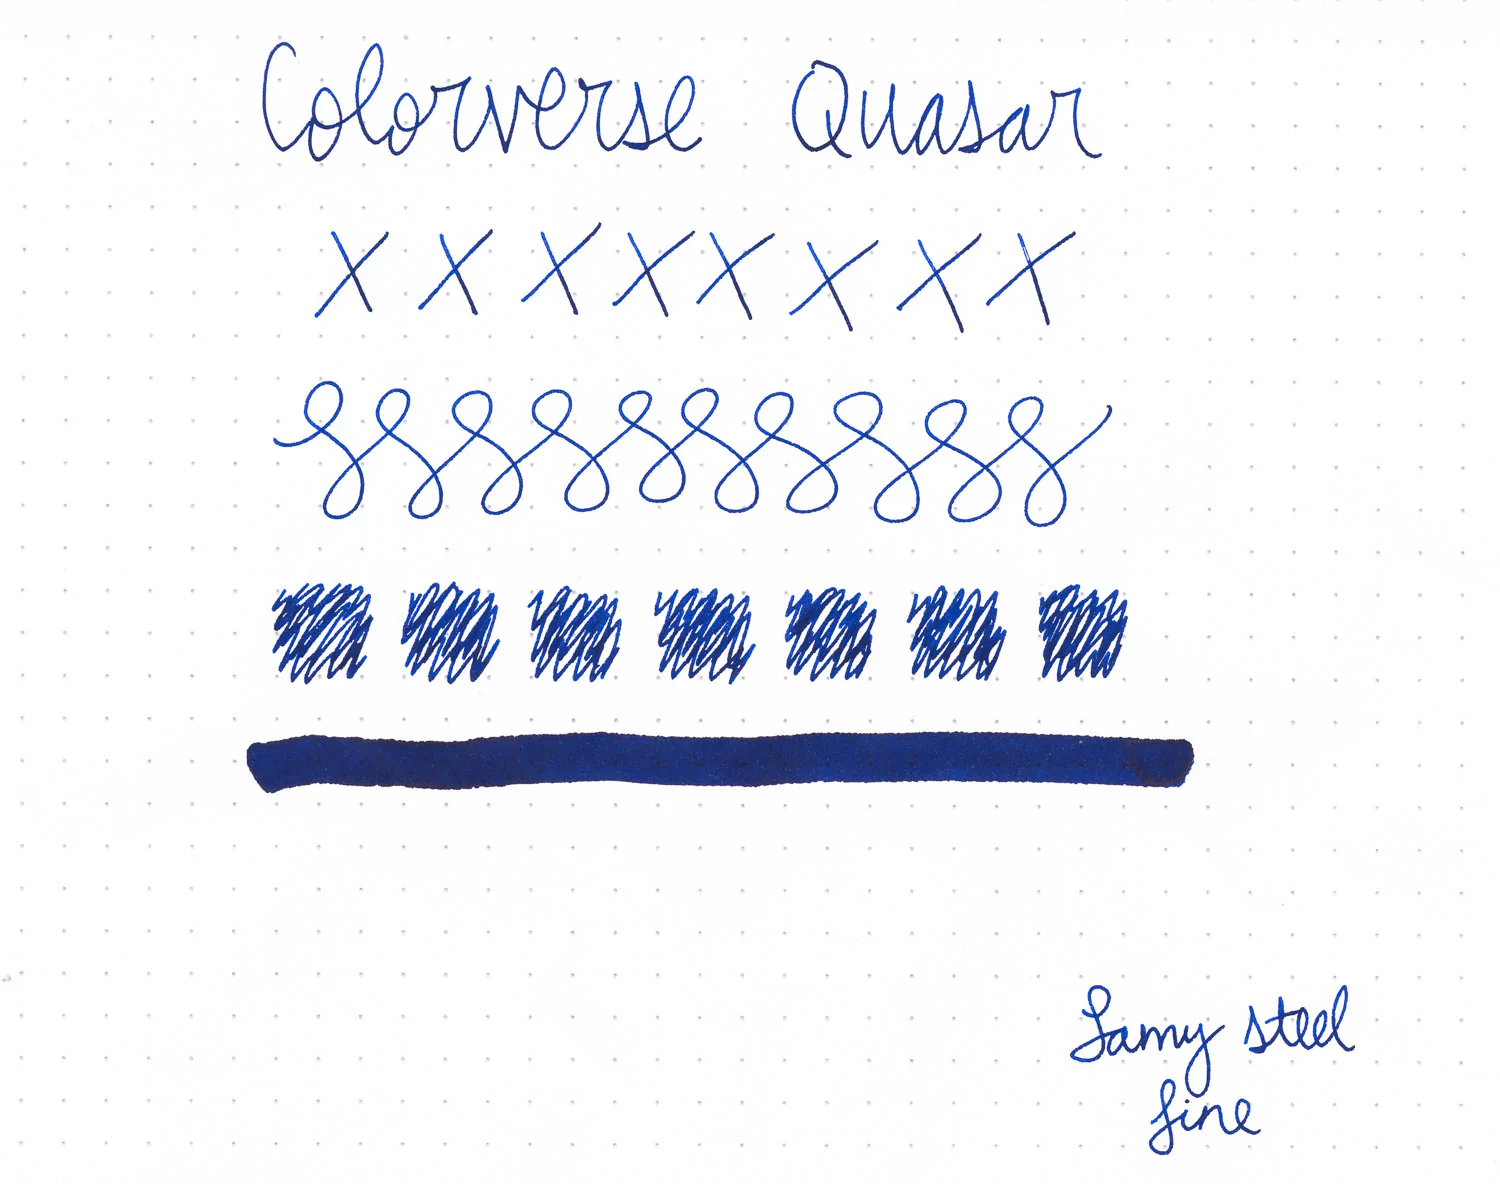 Colorverse Quasar
X X X X X X X X
Lamy steel
fine